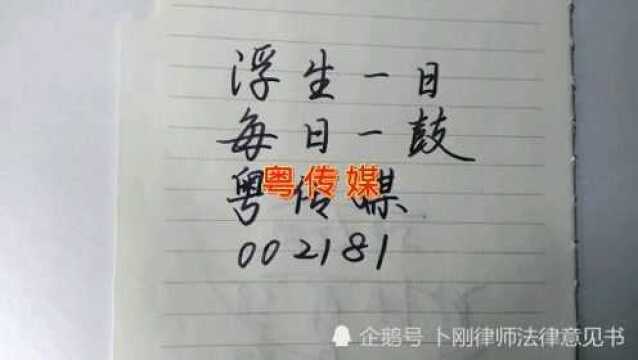 浮生一日
每日一鼓
粤传媒
粤传媒
002181
企鹅号 卜刚律师法律意见书